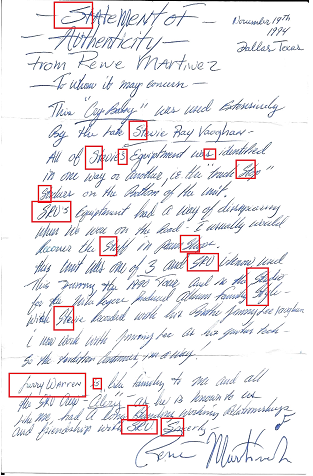 Statement of
Authenticity
November 19th
1994
Dallas, Texas
From Rene Martinez
To whom it may concern
This "Cry Baby" was used Extensively
By the Late Stevie Ray Vaughan
All of Stevie's Equiptment was identified
in one way or another, i.e the
on the Bottom of the unit.
SRV's Equiptment had a way of disappearing
when we were on the Road - I usually would
Recover the Stuff in Pawn Shops.
This Unit was one of 3 and SRV used
This during the 1990 Tour and in the Studio
for the Produced Album Family Style
with Stevie Recorded with his Brother Jimmy Lee Vaughan
I now work with Jimmy Lee as his guitar tech
So the tradition continues, in a way.
Warren is like family to me and all
the SRV as he is known to us
Like me, had a long working relationship
and friendship with SRV Sincerly
Rene Martinez